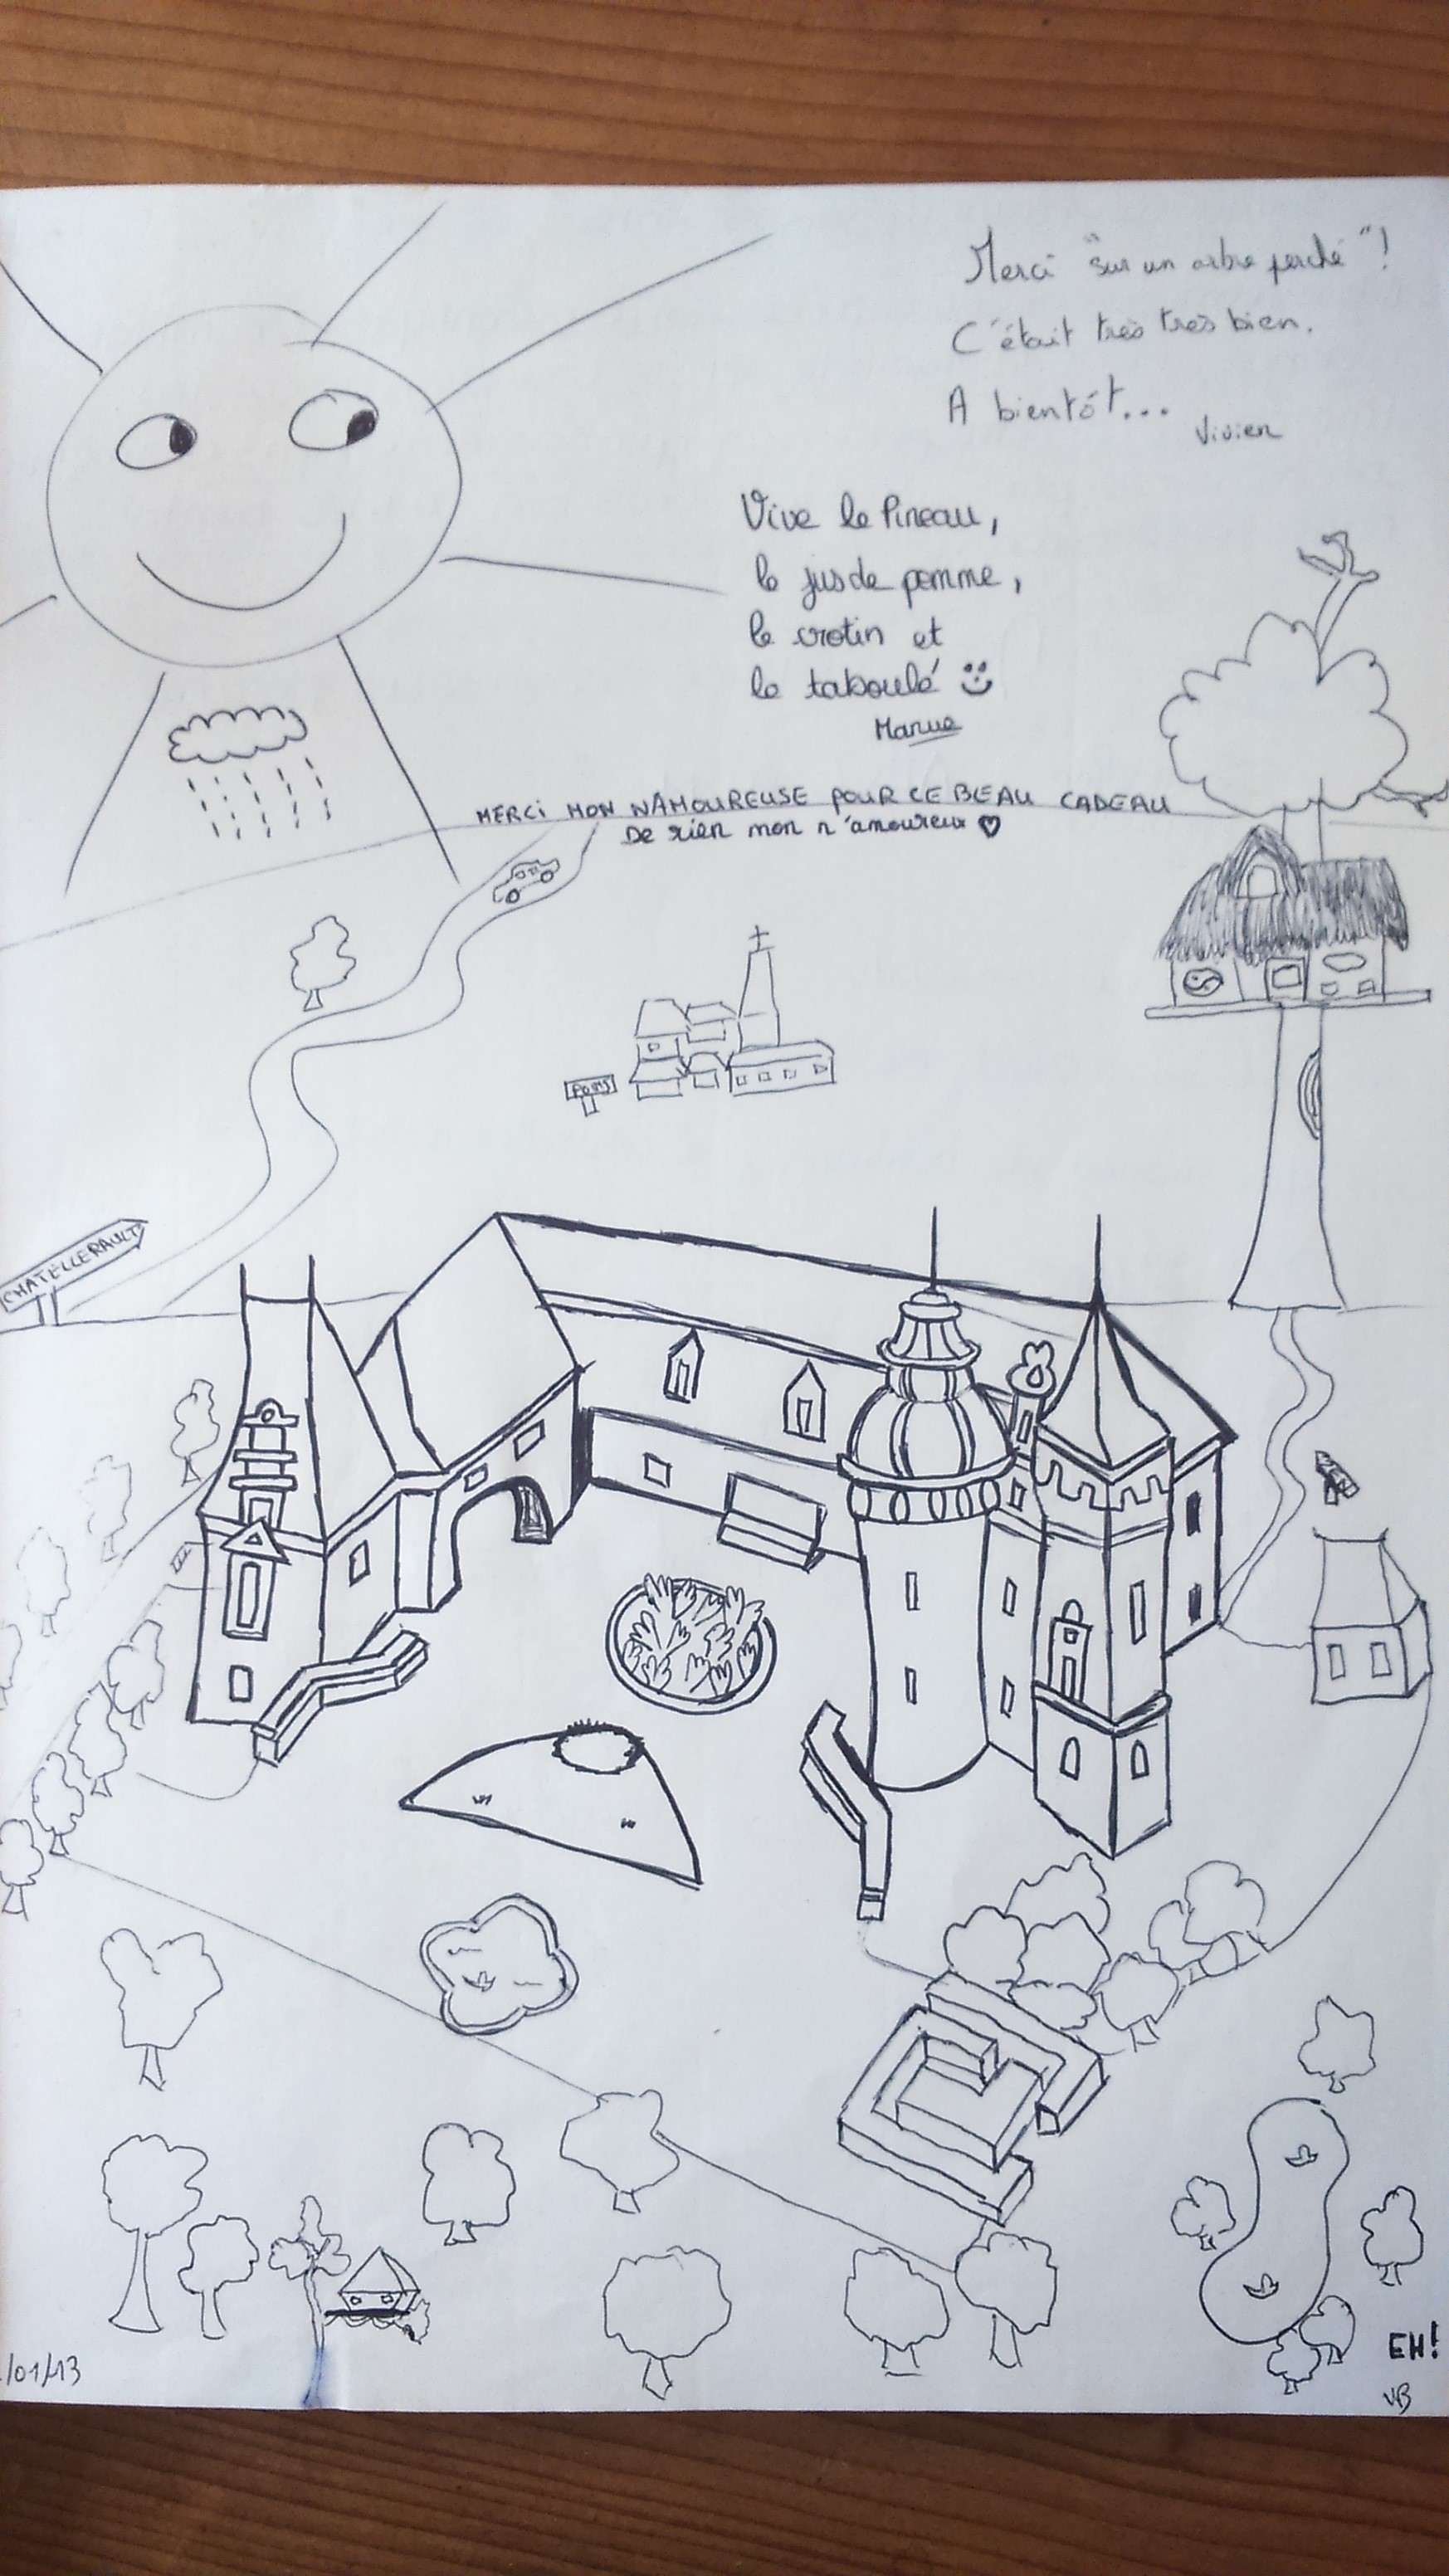 Merci "sur un arbre perché"!
C'était très très bien.
A bientôt...
Vivien
Vive le Pineau,
le jus de pomme,
le crotin et
le taboulé
Manue
MERCI MON NAMOUREUSE POUR CE BEAU CADEAU
De rien mon n'amoureux ♡
PONS
CHATELLERAULT
/01/13
EH!
VB